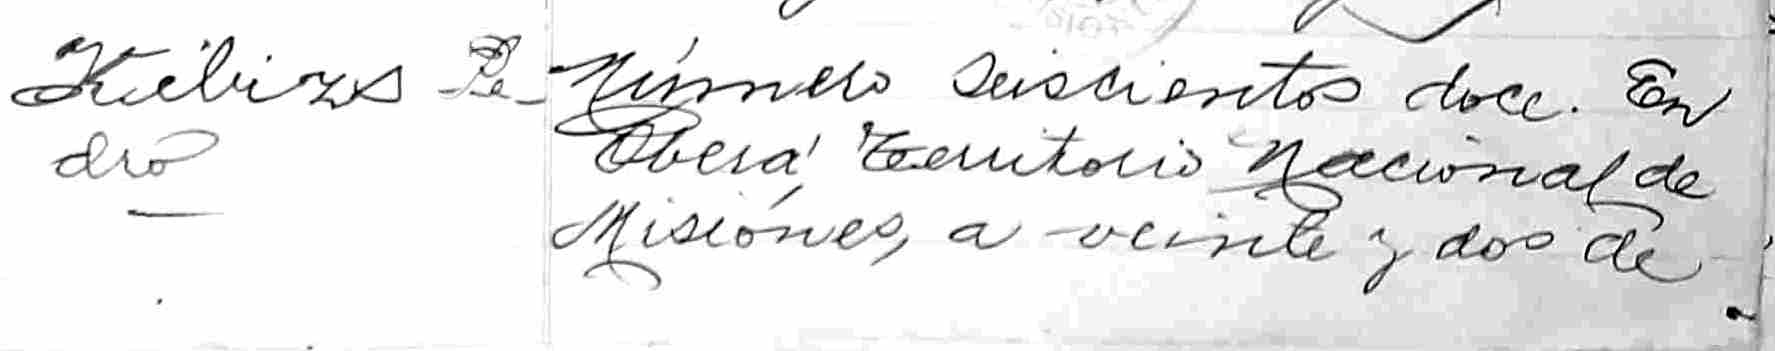 Kiebizs Pe-
dro
Número seiscientos doce. En
Oberá Territorio Nacional de
Misiónes, a veinte y dos de